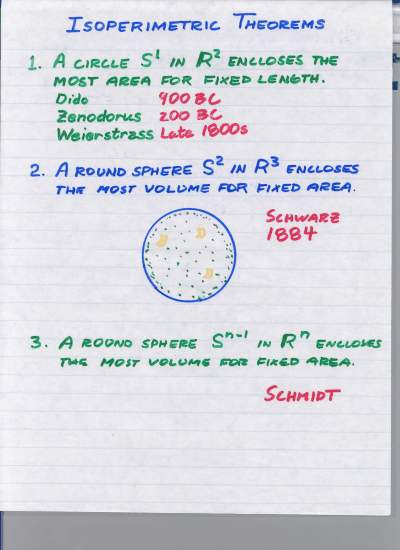 ISOPERIMETRIC THEOREMS
1. A CIRCLE S¹ IN R² ENCLOSES THE
MOST AREA FOR FIXED LENGTH.
Dido 900 BC
Zenodorus 200 BC
Weierstrass Late 1800s
2. A ROUND SPHERE S² IN R³ ENCLOSES
THE MOST VOLUME FOR FIXED AREA.
SCHWARZ
1884
3. A ROUND SPHERE Sⁿ⁻¹ IN Rⁿ ENCLOSES
THE MOST VOLUME FOR FIXED AREA.
SCHMIDT